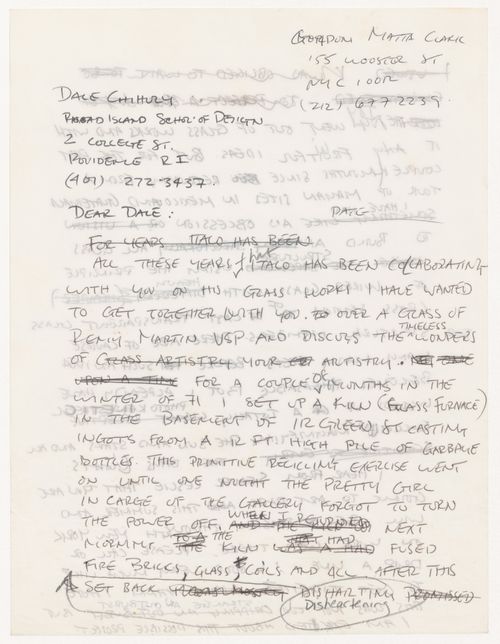 GORDON MATTA CLARK
155 WOOSTER ST
NYC 10012
(212) 677 2239
DALE CHIHULY
RHOAD ISLAND SCHOOL OF DESIGN
2 COLLEGE ST.
PROVIDENCE R I
(401) 272-3437.
DEAR DALE : DATE
FOR YEARS ITALO HAS BEEN
ALL THESE YEARS THAT ITALO HAS BEEN COLABORATING
WITH YOU ON HIS GLASS WORK I HAVE WANTED
TO GET TOGETHER WITH YOU. TO OVER A GLASS OF
REMY MARTIN VSP AND DISCUSS THE TIMELESS WONDERS
OF GLASS ARTISTRY YOUR ARTISTRY.
UPON A TIME FOR A COUPLE OF MONTHS IN THE
WINTER OF 71 I SET UP A KILN (GLASS FURNACE)
IN THE BASEMENT OF 112 GREEN ST CASTING
INGOTS FROM A 12 FT HIGH PILE OF GARBAGE
BOTTLES. THIS PRIMITIVE RECICLING EXERCISE WENT
ON UNTIL ONE NIGHT THE PRETTY GIRL
IN CARGE OF THE GALLERY FORGOT TO TURN
THE POWER OFF, AND THE KILN WHEN I RETURNED NEXT
MORNING TO THE THE KILN WAS A HAD THAT HAD FUSED
FIRE BRICKS, GLASS, COILS AND ALL. AFTER THIS
SET BACK DISHARTING PROMISED
Disheartening